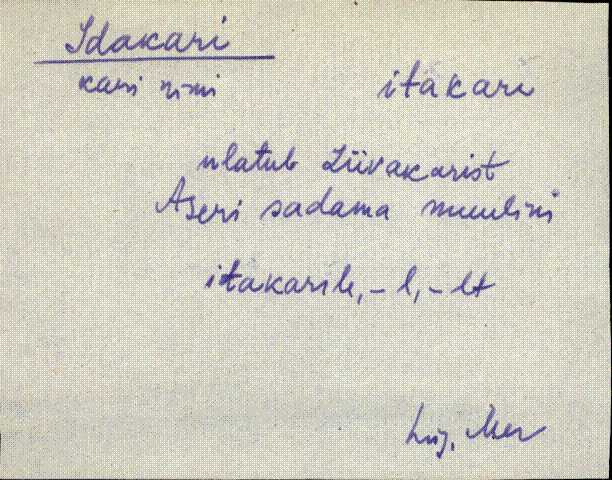 Idakari
kari nimi itakari
ulatub Liivakarist
Aseri sadama muulini
itakarile, - l, - lt
Lüg. Aser